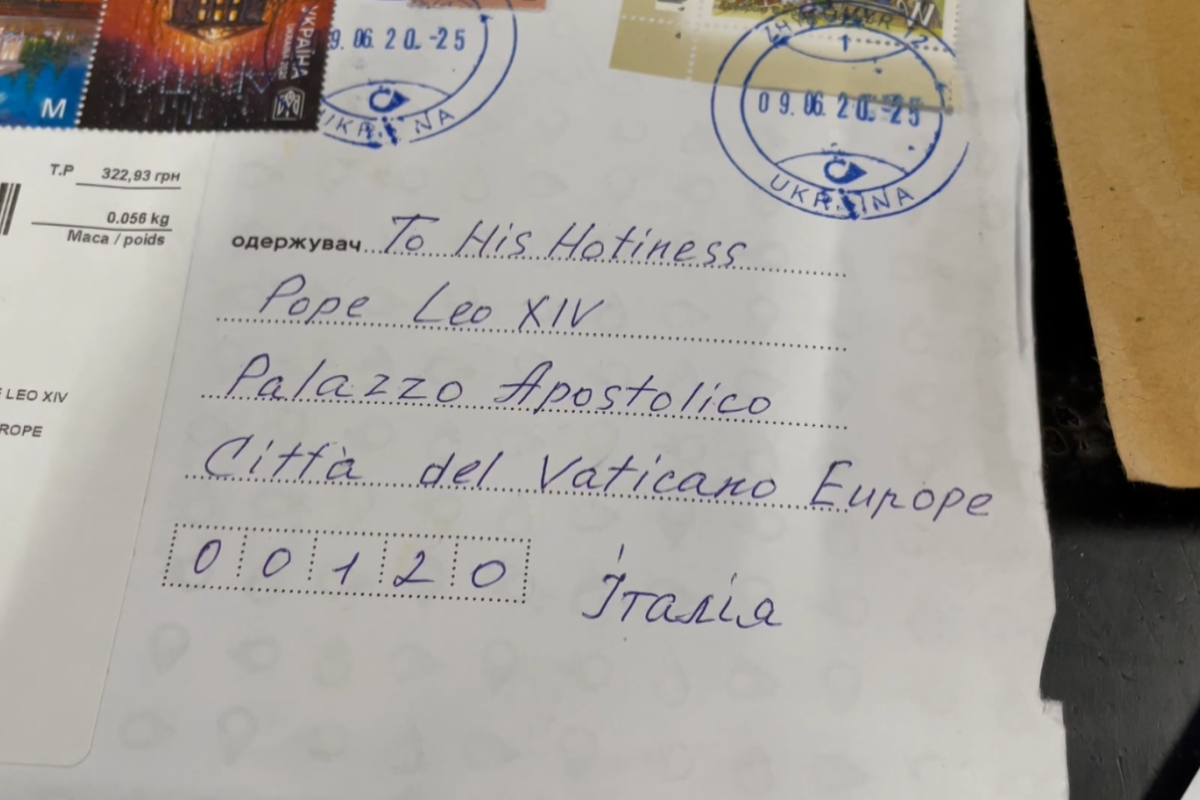 УКРАЇНА
M
9. 06. 20.-25
UKRAINA
ZHYTOMYR 12
W
09.06.20.-25
UKRAINA
T.P 322,93 грн
0.056 kg
Maca / poids
LEO XIV
ROPE
одержувач To His Hotiness
Pope Leo XIV
Palazzo Apostolico
Città del Vaticano Europe
00120 Італія